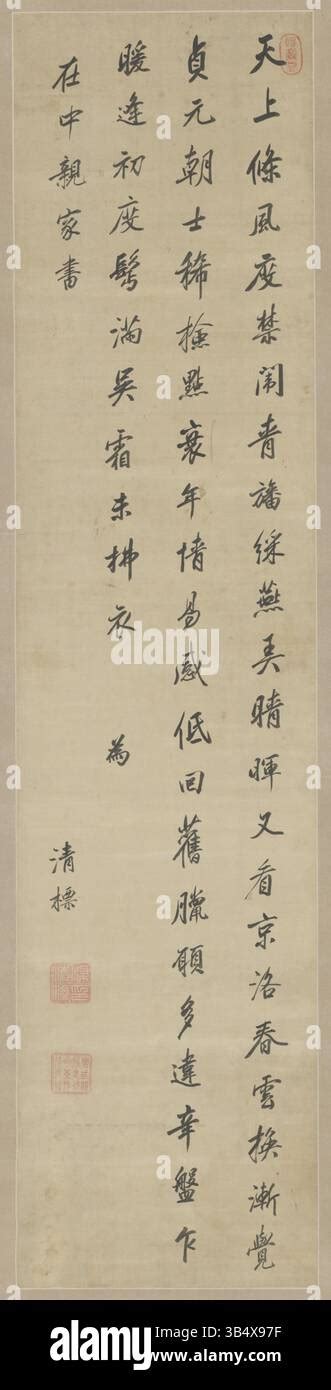 天上條風度禁闈青旛綵燕弄晴暉又看京洛春雲換漸覺
貞元朝士稀檢點衰年情易感低回舊臘願多違辛盤乍
暖逢初度鬢滿吳霜未拂衣 為
在中親家書 清標
alamy
Image ID: 3B4X97F
www.alamy.com